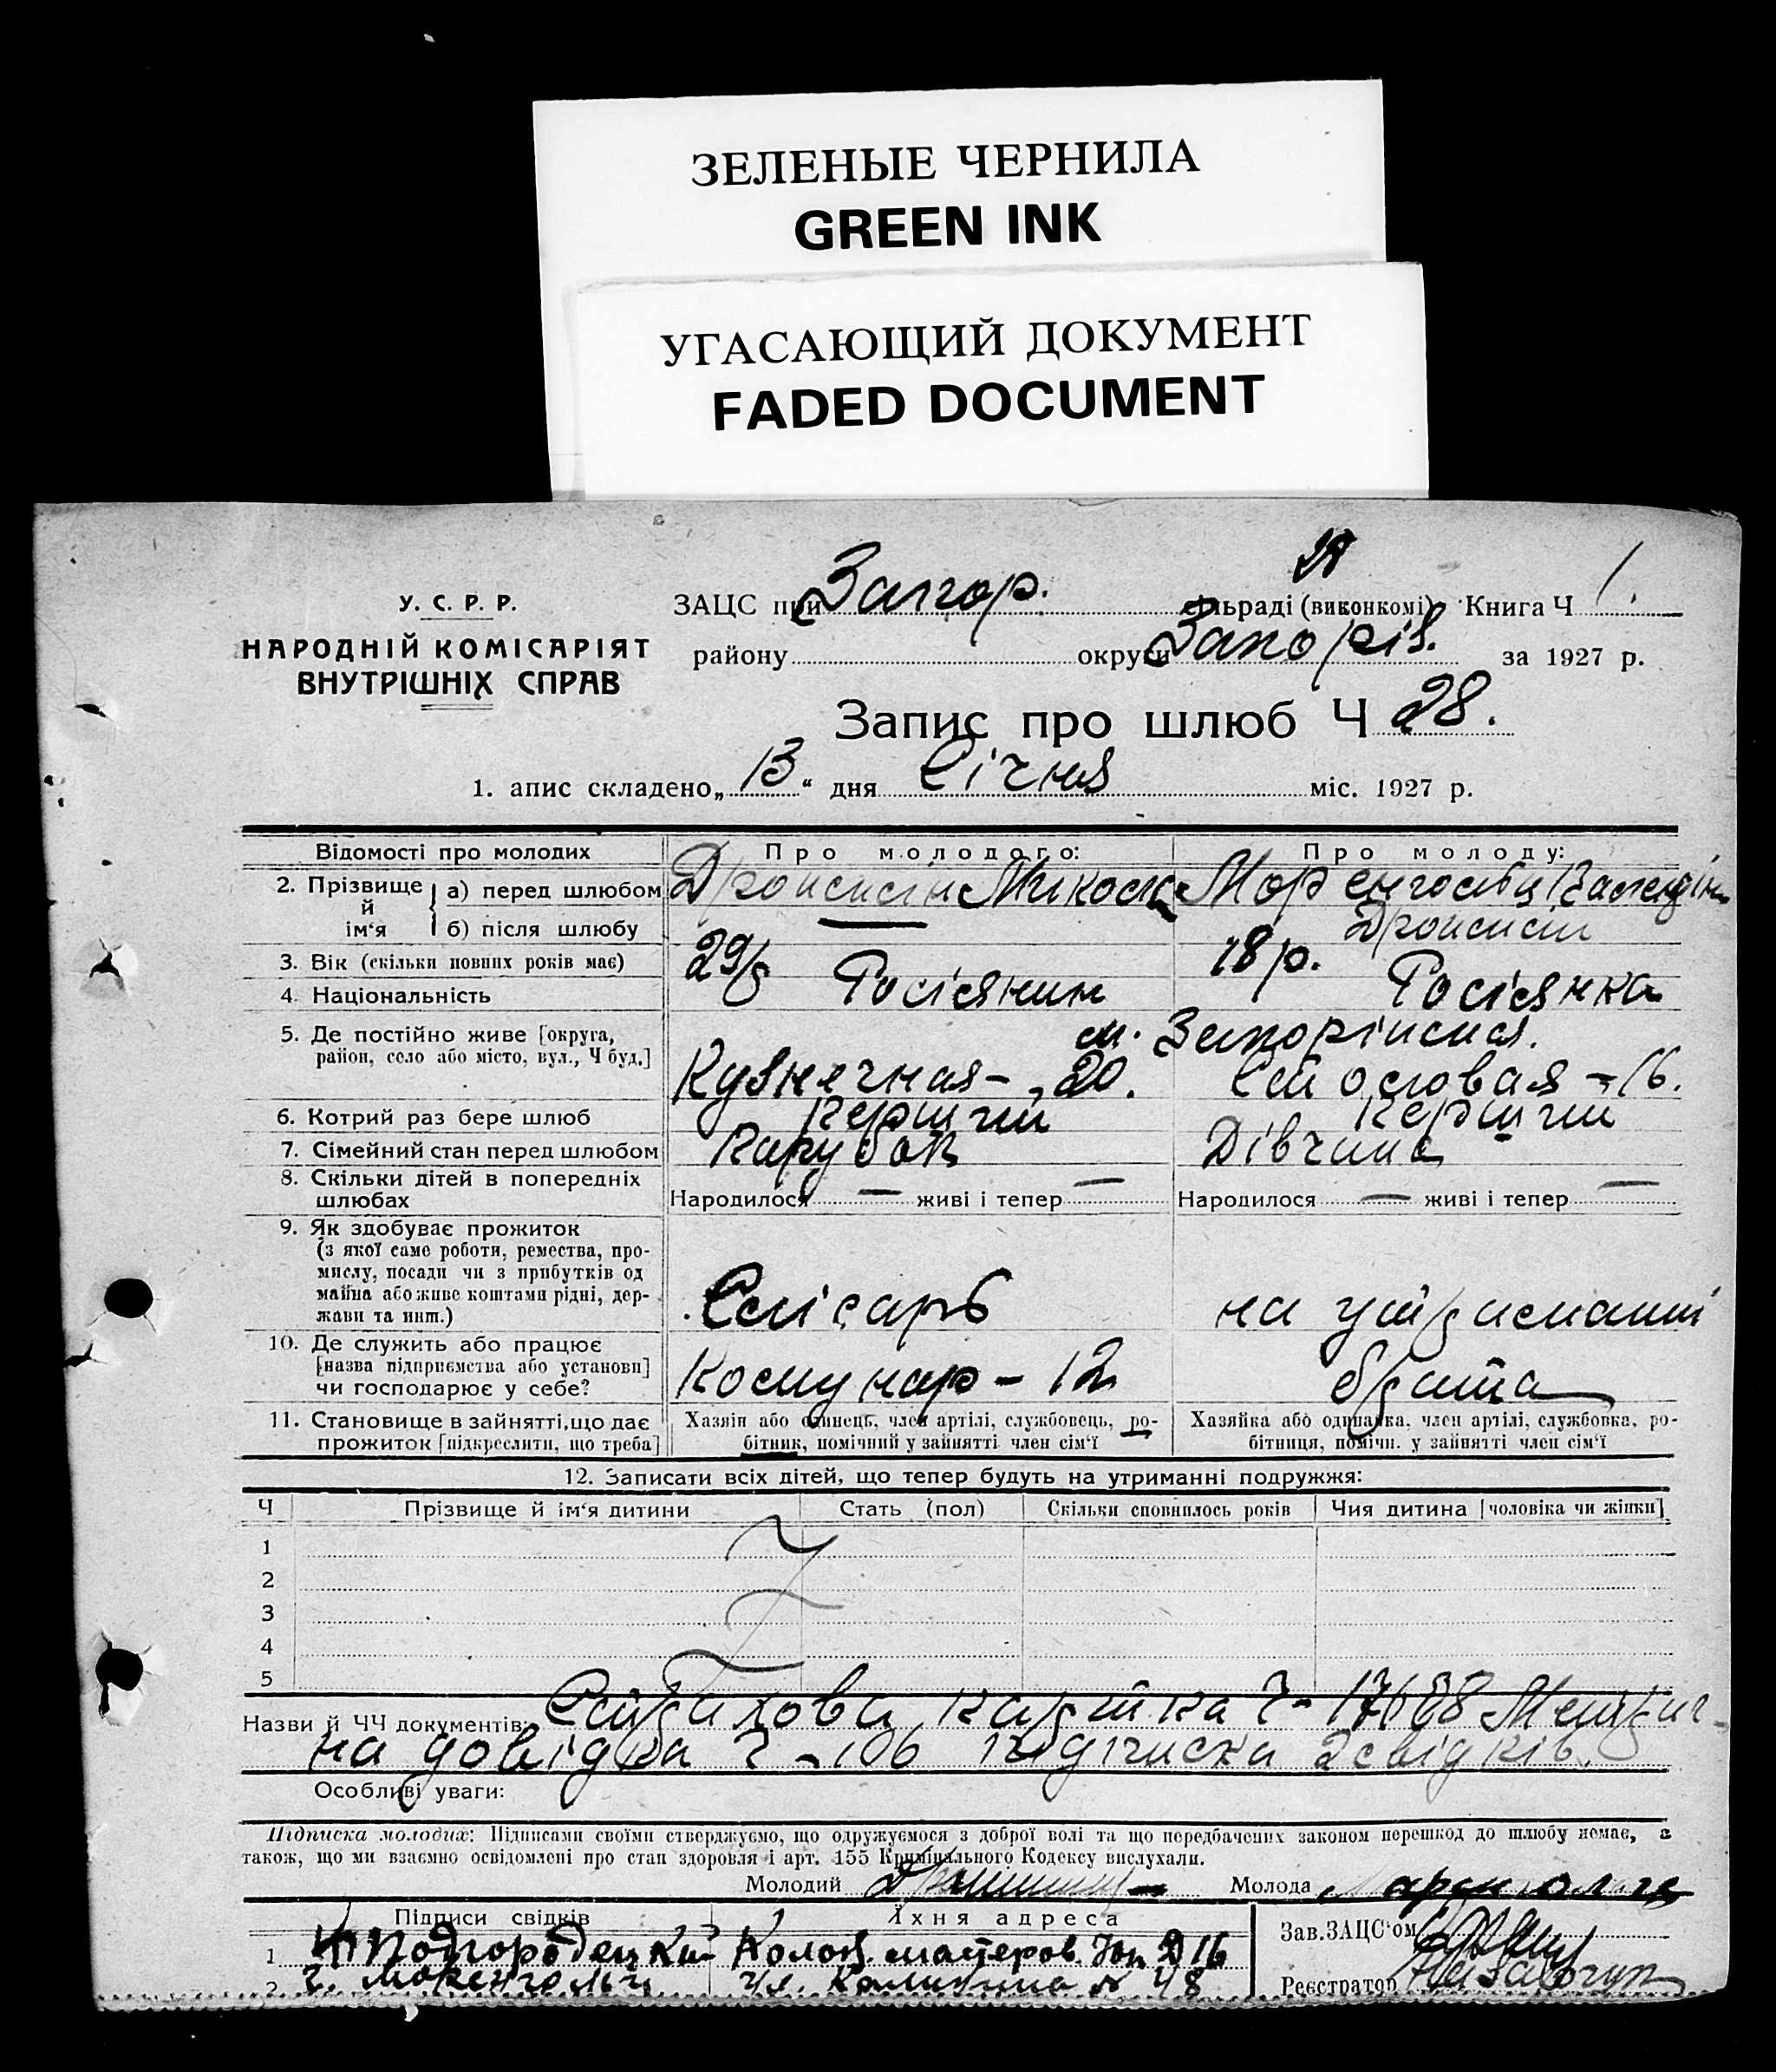 ЗЕЛЕНЫЕ ЧЕРНИЛА
GREEN INK
УГАСАЮЩИЙ ДОКУМЕНТ
FADED DOCUMENT
У. С. Р. Р.
НАРОДНІЙ КОМІСАРІЯТ
ВНУТРІШНІХ СПРАВ
ЗАЦС при Запор. сільраді (виконкомі) Книга Ч 1.
району округи Запоріз. за 1927 р.
Запис про шлюб Ч 28.
1. апис складено „13“ дня Січня міс. 1927 р.
Відомості про молодих Про молодого: Про молоду:
2. Прізвище й ім‘я а) перед шлюбом Микола
б) після шлюбу
3. Вік (скільки повних років має) 29 18 р.
4. Національність Росіянин Росіянка
5. Де постійно живе [округа, район, село або місто, вул., Ч буд.] м. Запоріжжя.
Кузнечная - 20. - 16.
6. Котрий раз бере шлюб Перший Перший
7. Сімейний стан перед шлюбом Парубок Дівчина
8. Скільки дітей в попередніх шлюбах Народилося — живі і тепер — Народилося — живі і тепер —
9. Як здобуває прожиток
(з якої саме роботи, ремества, про-
мислу, посади чи з прибутків од
майна або живе коштами рідні, дер-
жави та инш.) Слісарь на утриманні
10. Де служить або працює
[назва підприємства або установи]
чи господарює у себе? Комунар - 12 брата
11. Становище в зайнятті, що дає
прожиток [підкреслити, що треба]
Хазяїн або одинець, член артілі, службовець, ро-
бітник, помічний у зайнятті член сім‘ї
Хазяйка або одиначка, член артілі, службовка, ро-
бітниця, помічн. у зайнятті член сім‘ї
12. Записати всіх дітей, що тепер будуть на утриманні подружжя:
Ч Прізвище й ім‘я дитини Стать (пол) Скільки сповнилось років Чия дитина [чоловіка чи жінки]
1
2
3
4
5
Назви й ЧЧ документів: Страхова картка Ч - Метрич-
на довідка Ч - 106 підписка 2 свідків.
Особливі уваги:
Підписка молодих: Підписами своїми стверджуємо, що одружуємося з доброї волі та що передбачених законом перешкод до шлюбу немає, а
також, що ми взаємно освідомлені про стан здоров‘я і арт. 155 Кримінального Кодексу вислухали.
Молодий Молода
Підписи свідків Їхня адреса Зав. ЗАЦС‘ом
1 Подгородецки Колон. мастеров. Д 16
2 ул. Калинина № 48 Реєстратор